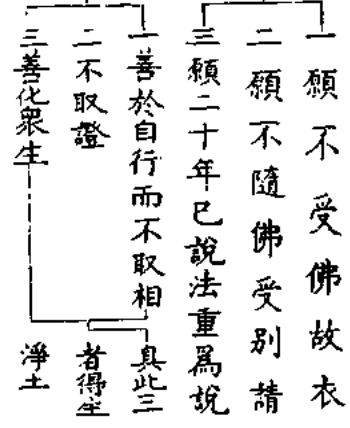 一願不受佛故衣
二願不隨佛受別請
三願二十年已說法重爲說
一善於自行而不取相
二不取證
三善化衆生
具此三
者得生
淨土